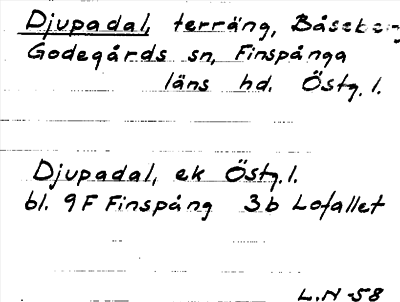 Djupadal, terräng,
Godegårds sn, Finspånga
läns hd. Östg. l.
Djupadal, ek Östg. l.
bl. 9F Finspång 3b Lofallet
L.N -58